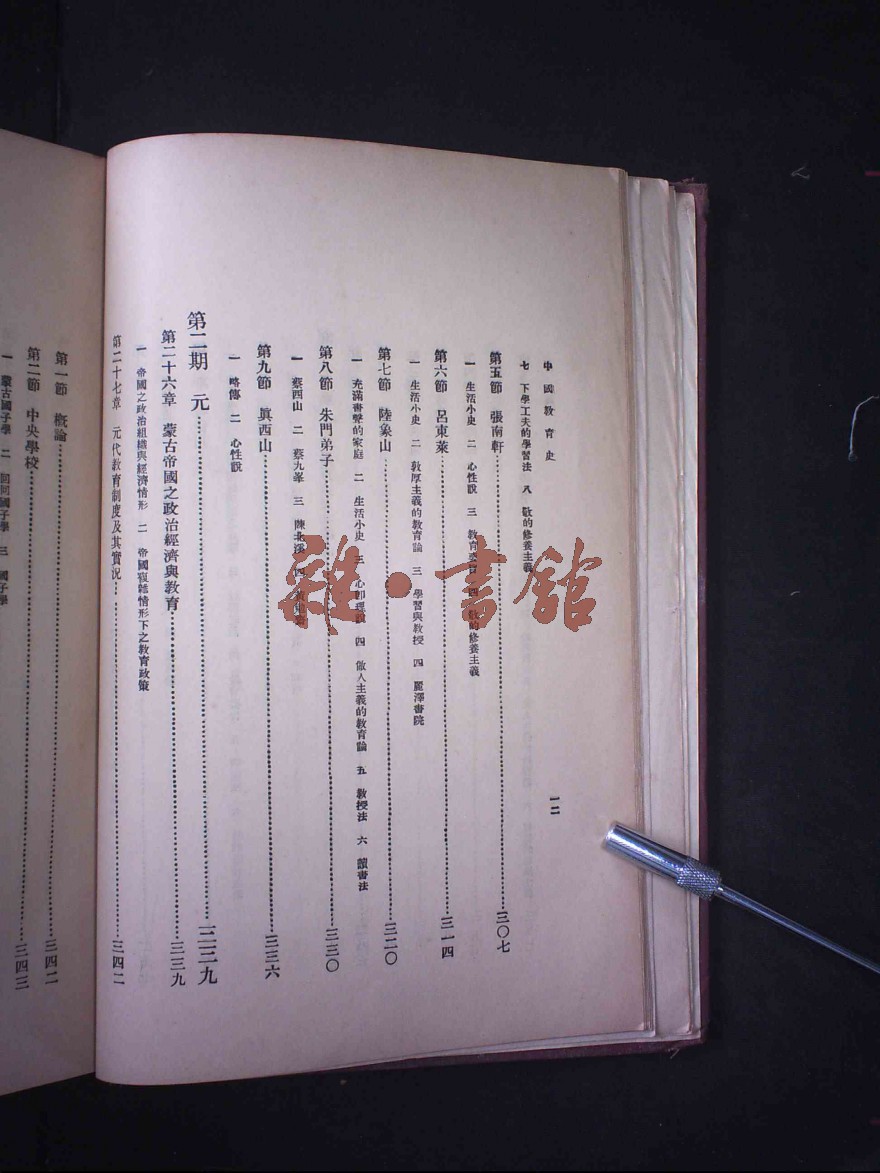 中國教育史
一二
七 下學工夫的學習法 八 敬的修養主義
第五節 張南軒 三〇七
一 生活小史 二 心性說 三 教育 四 敬的修養主義
第六節 呂東萊 三一四
一 生活小史 二 敦厚主義的教育論 三 學習與教授 四 麗澤書院
第七節 陸象山 三二〇
一 充滿書聲的家庭 二 生活小史 三 心卽理說 四 做人主義的教育論 五 教授法 六 讀書法
第八節 朱門弟子 三三〇
一 蔡西山 二 蔡九峯 三 陳北溪 四
第九節 眞西山 三三六
一 略傳 二 心性說
第二期 元 三三九
第二十六章 蒙古帝國之政治經濟與教育 三三九
一 帝國之政治組織與經濟情形 二 帝國複雜情形下之教育政策
第二十七章 元代教育制度及其實況 三四二
第一節 概論 三四二
第二節 中央學校 三四三
一 蒙古國子學 二 回回國子學 三 國子學
雜·書館